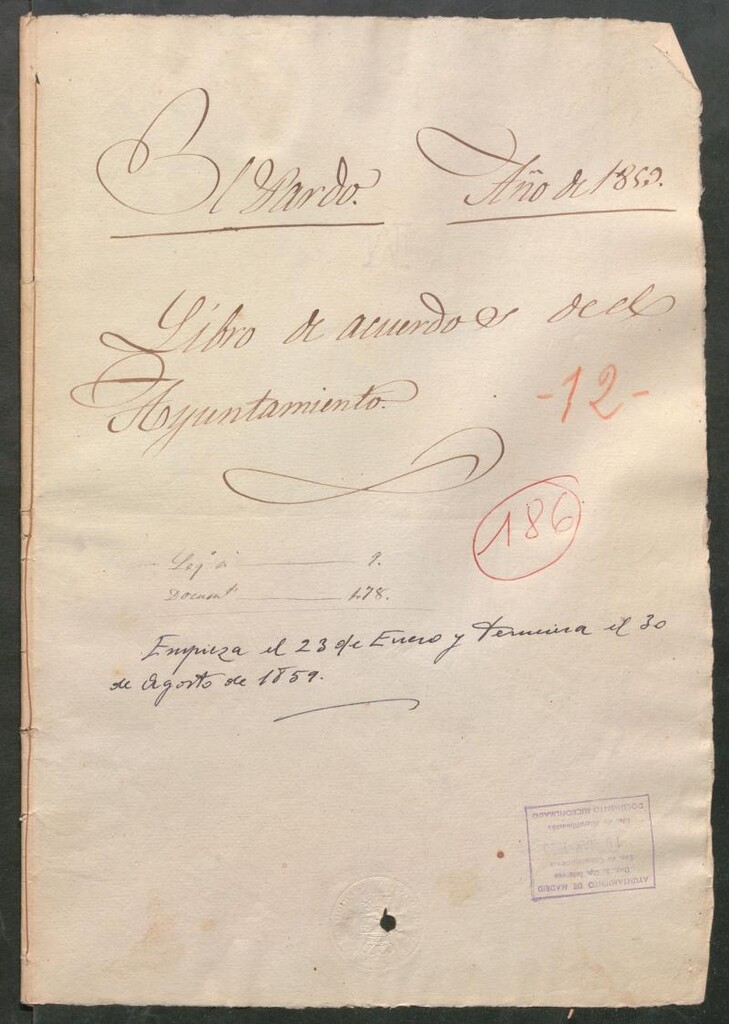 El Pardo. Año de 1859.
Libro de acuerdos del
Ayuntamiento.
-12-
186
Legº á 9.
Documtº 178.
Empieza el 23 de Enero y termina el 30
de Agosto de 1859.
AYUNTAMIENTO DE MADRID
DOCUMENTO MICROFILMADO